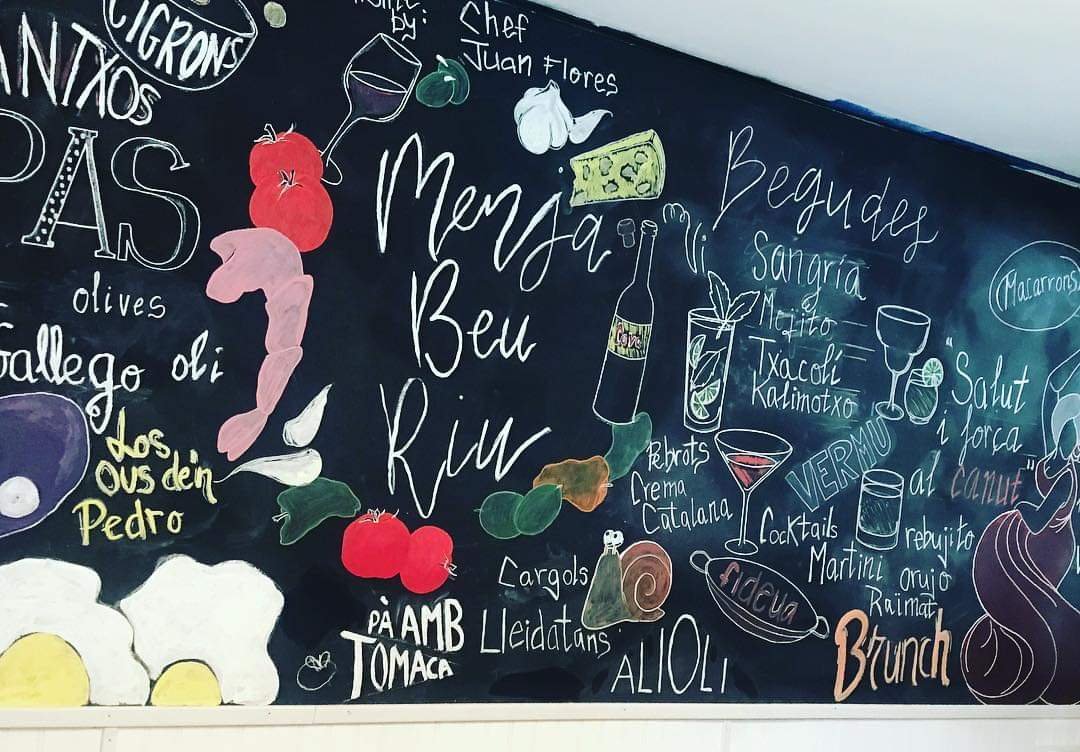 CIGRONS
ANTXOS
PAS
olives
Gallego oli
Los
Ous de'n
Pedro
by:
Chef
Juan Flores
Menja
Beu
Riu
Vi
Cava
Begudes
Sangria
Mojito
Txacoli
Kalimotxo
VERMU
Macarrons
"Salut
i força
al canut"
Pebrots
Crema
Catalana
Cocktails
Martini
rebujito
orujo
Raïmat
fideua
Brunch
Cargols
Lleidatans
ALIOLI
PÀ AMB
TOMACA